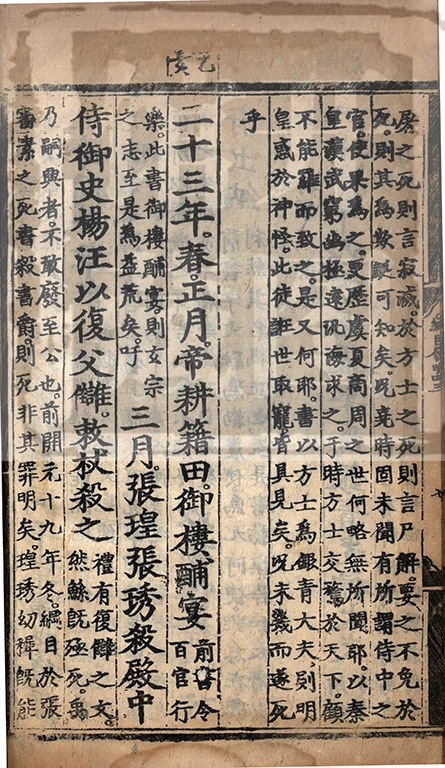 乙亥
屠之死則言寂滅。於方士之死則言尸解。要之不免於
死。則其爲欺誕可知矣。况堯時固未聞有所謂侍中之
官。使果爲之。更歷虞夏商周之世何略無所聞耶。以秦
皇漢武窮幽極遠汎海求之。于時方士交騖於天下。顧
不能羅而致之。是又何耶。書以方士爲銀青大夫。則明
皇惑於神怪。此徒誑世取寵。皆具見矣。况未幾而遂死
乎
二十三年。春。正月。帝耕籍田。御樓酺宴
前書令
百官行
樂。此書御樓酺宴。則玄宗
之志至是爲益荒矣。吁
三月。張瑝張琇殺殿中
侍御史楊汪以復父讎。敕杖殺之
禮有復讎之文
然鯀旣殛死。禹
乃嗣興者。不敢廢至公也。前開元十九年冬。綱目於張
審素之死書殺。書爵。則死非其罪明矣。瑝琇幼穉旣能